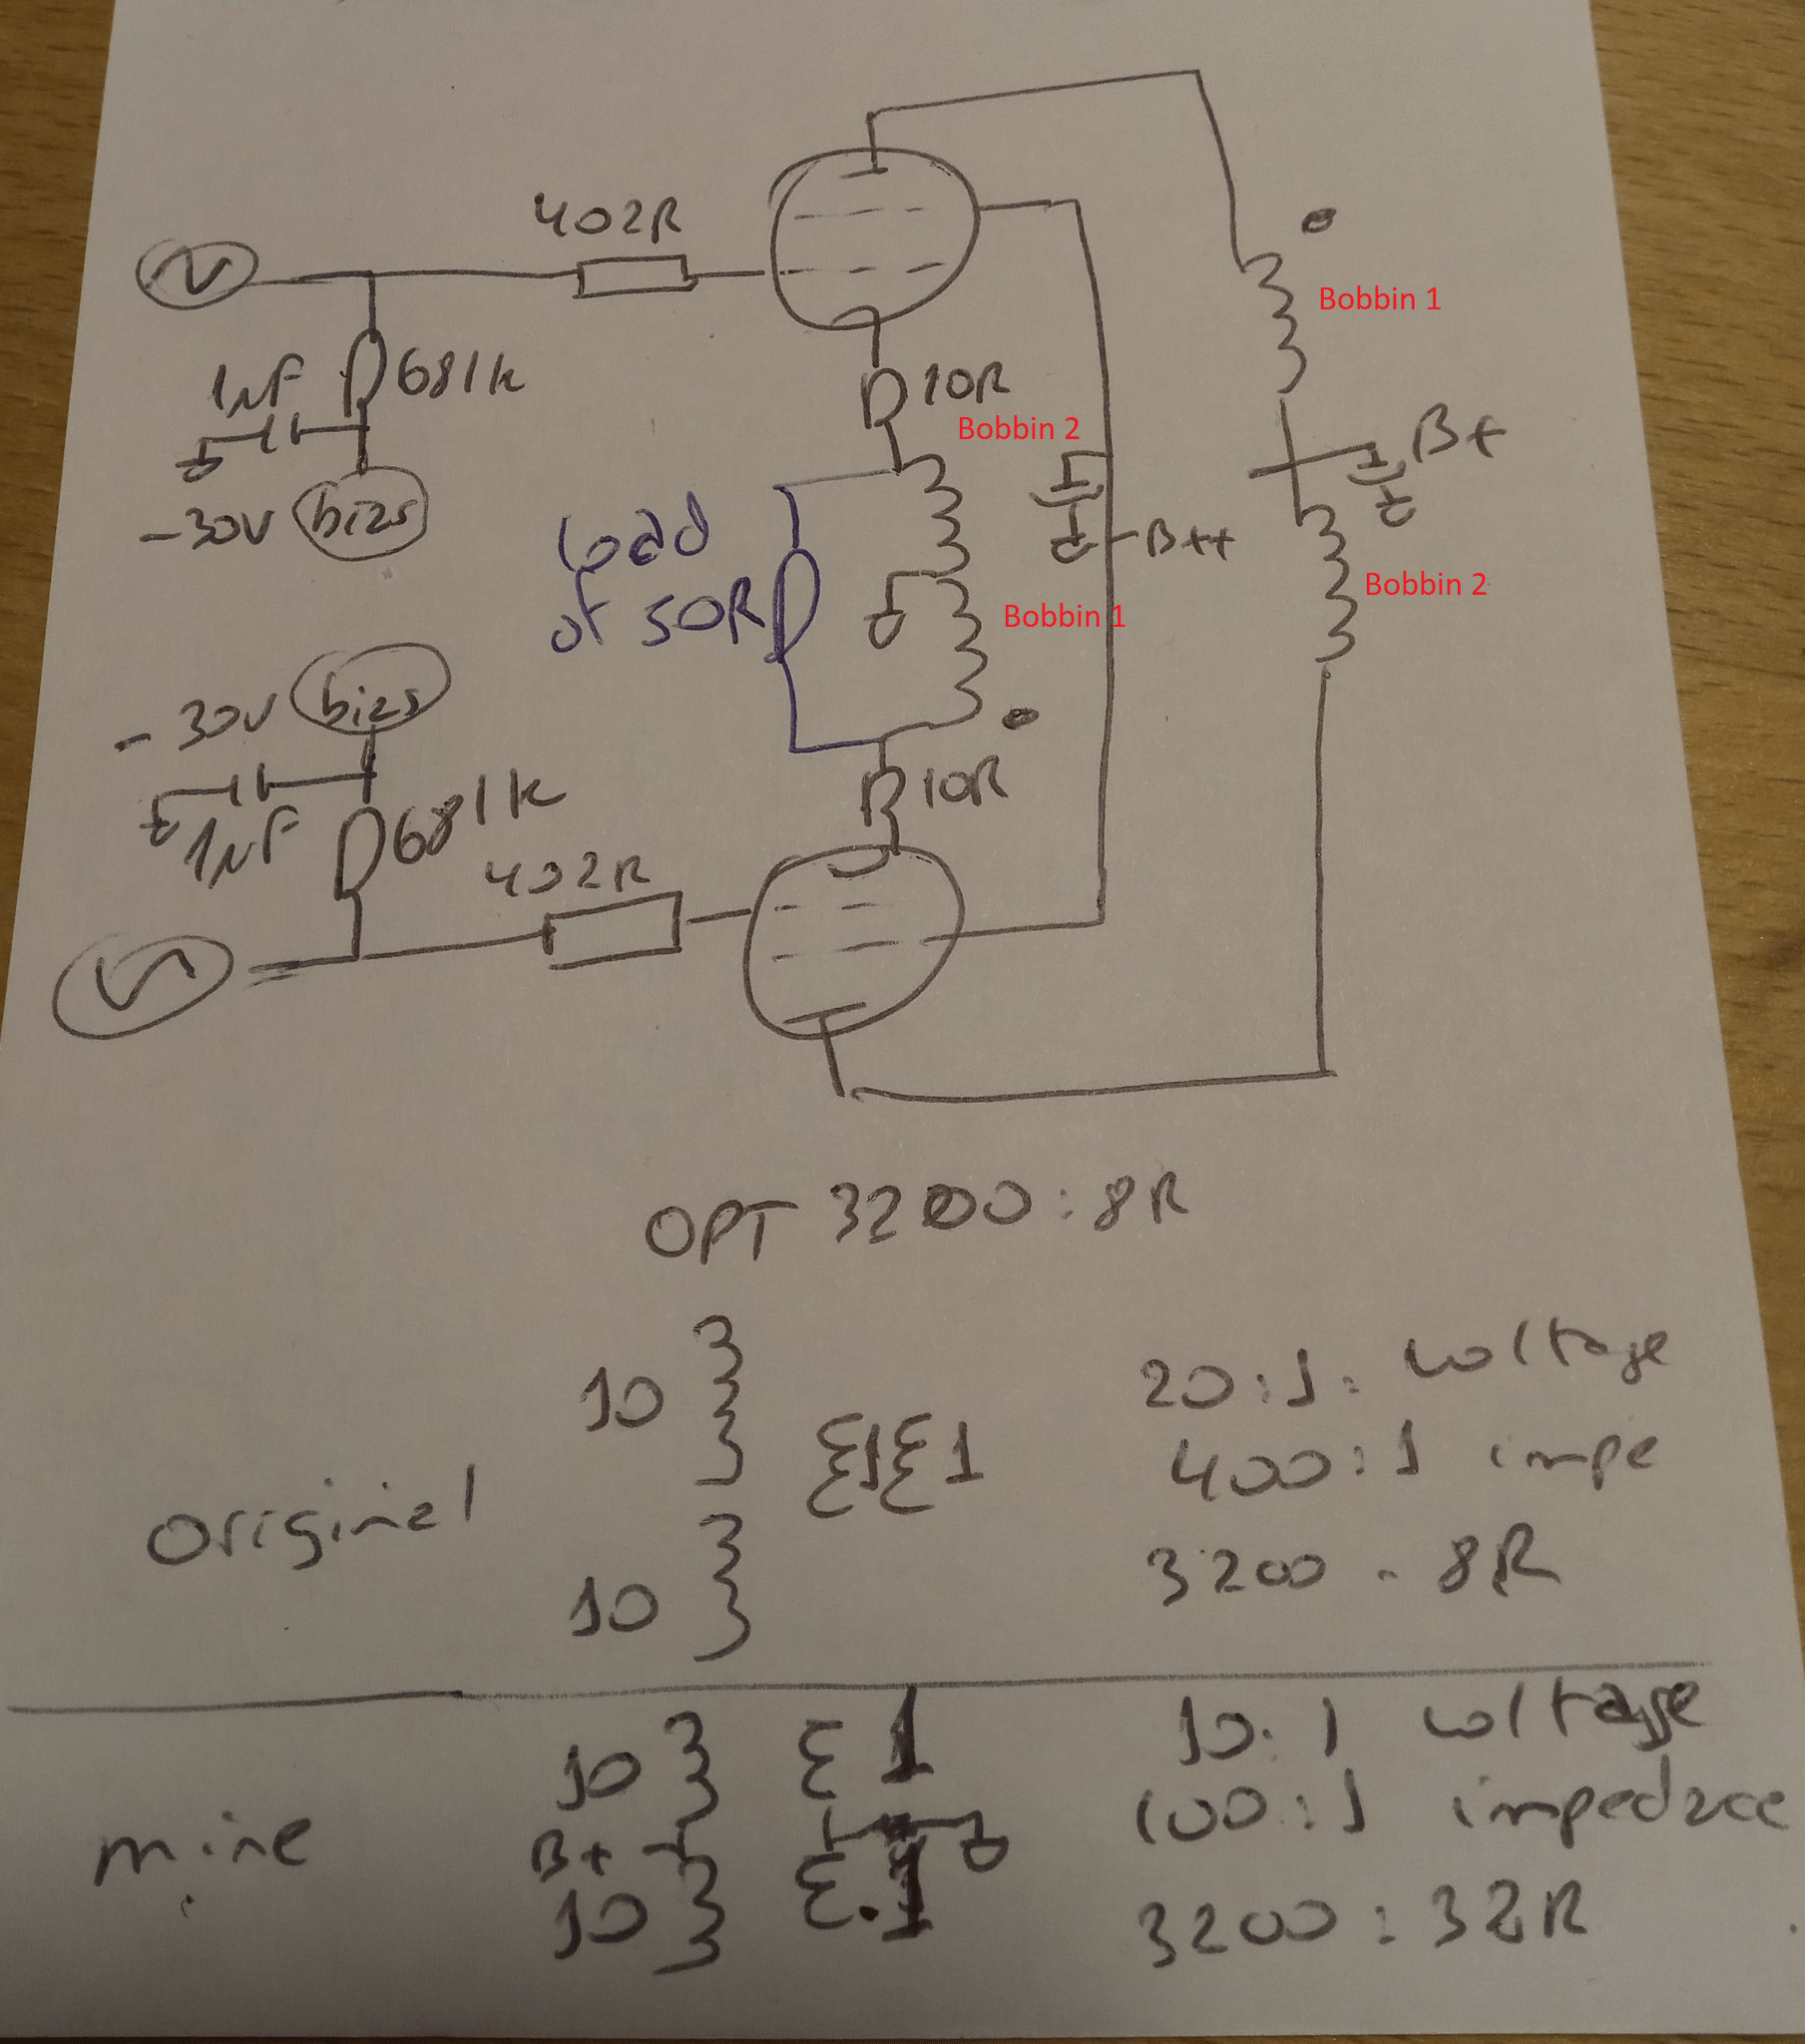 402R
681k
1uF
-30V bias
10R
Bobbin 2
Bobbin 1
B+
B++
Load
of 50R
Bobbin 1
Bobbin 2
-30V bias
681k
1uF
10R
402R
OPT 3200:8R
10
10
1 1
Original
20:1: voltage
400:1 impe
3200 - 8R
mine
10
B+
10
1
1
10:1 voltage
100:1 impedace
3200:32R